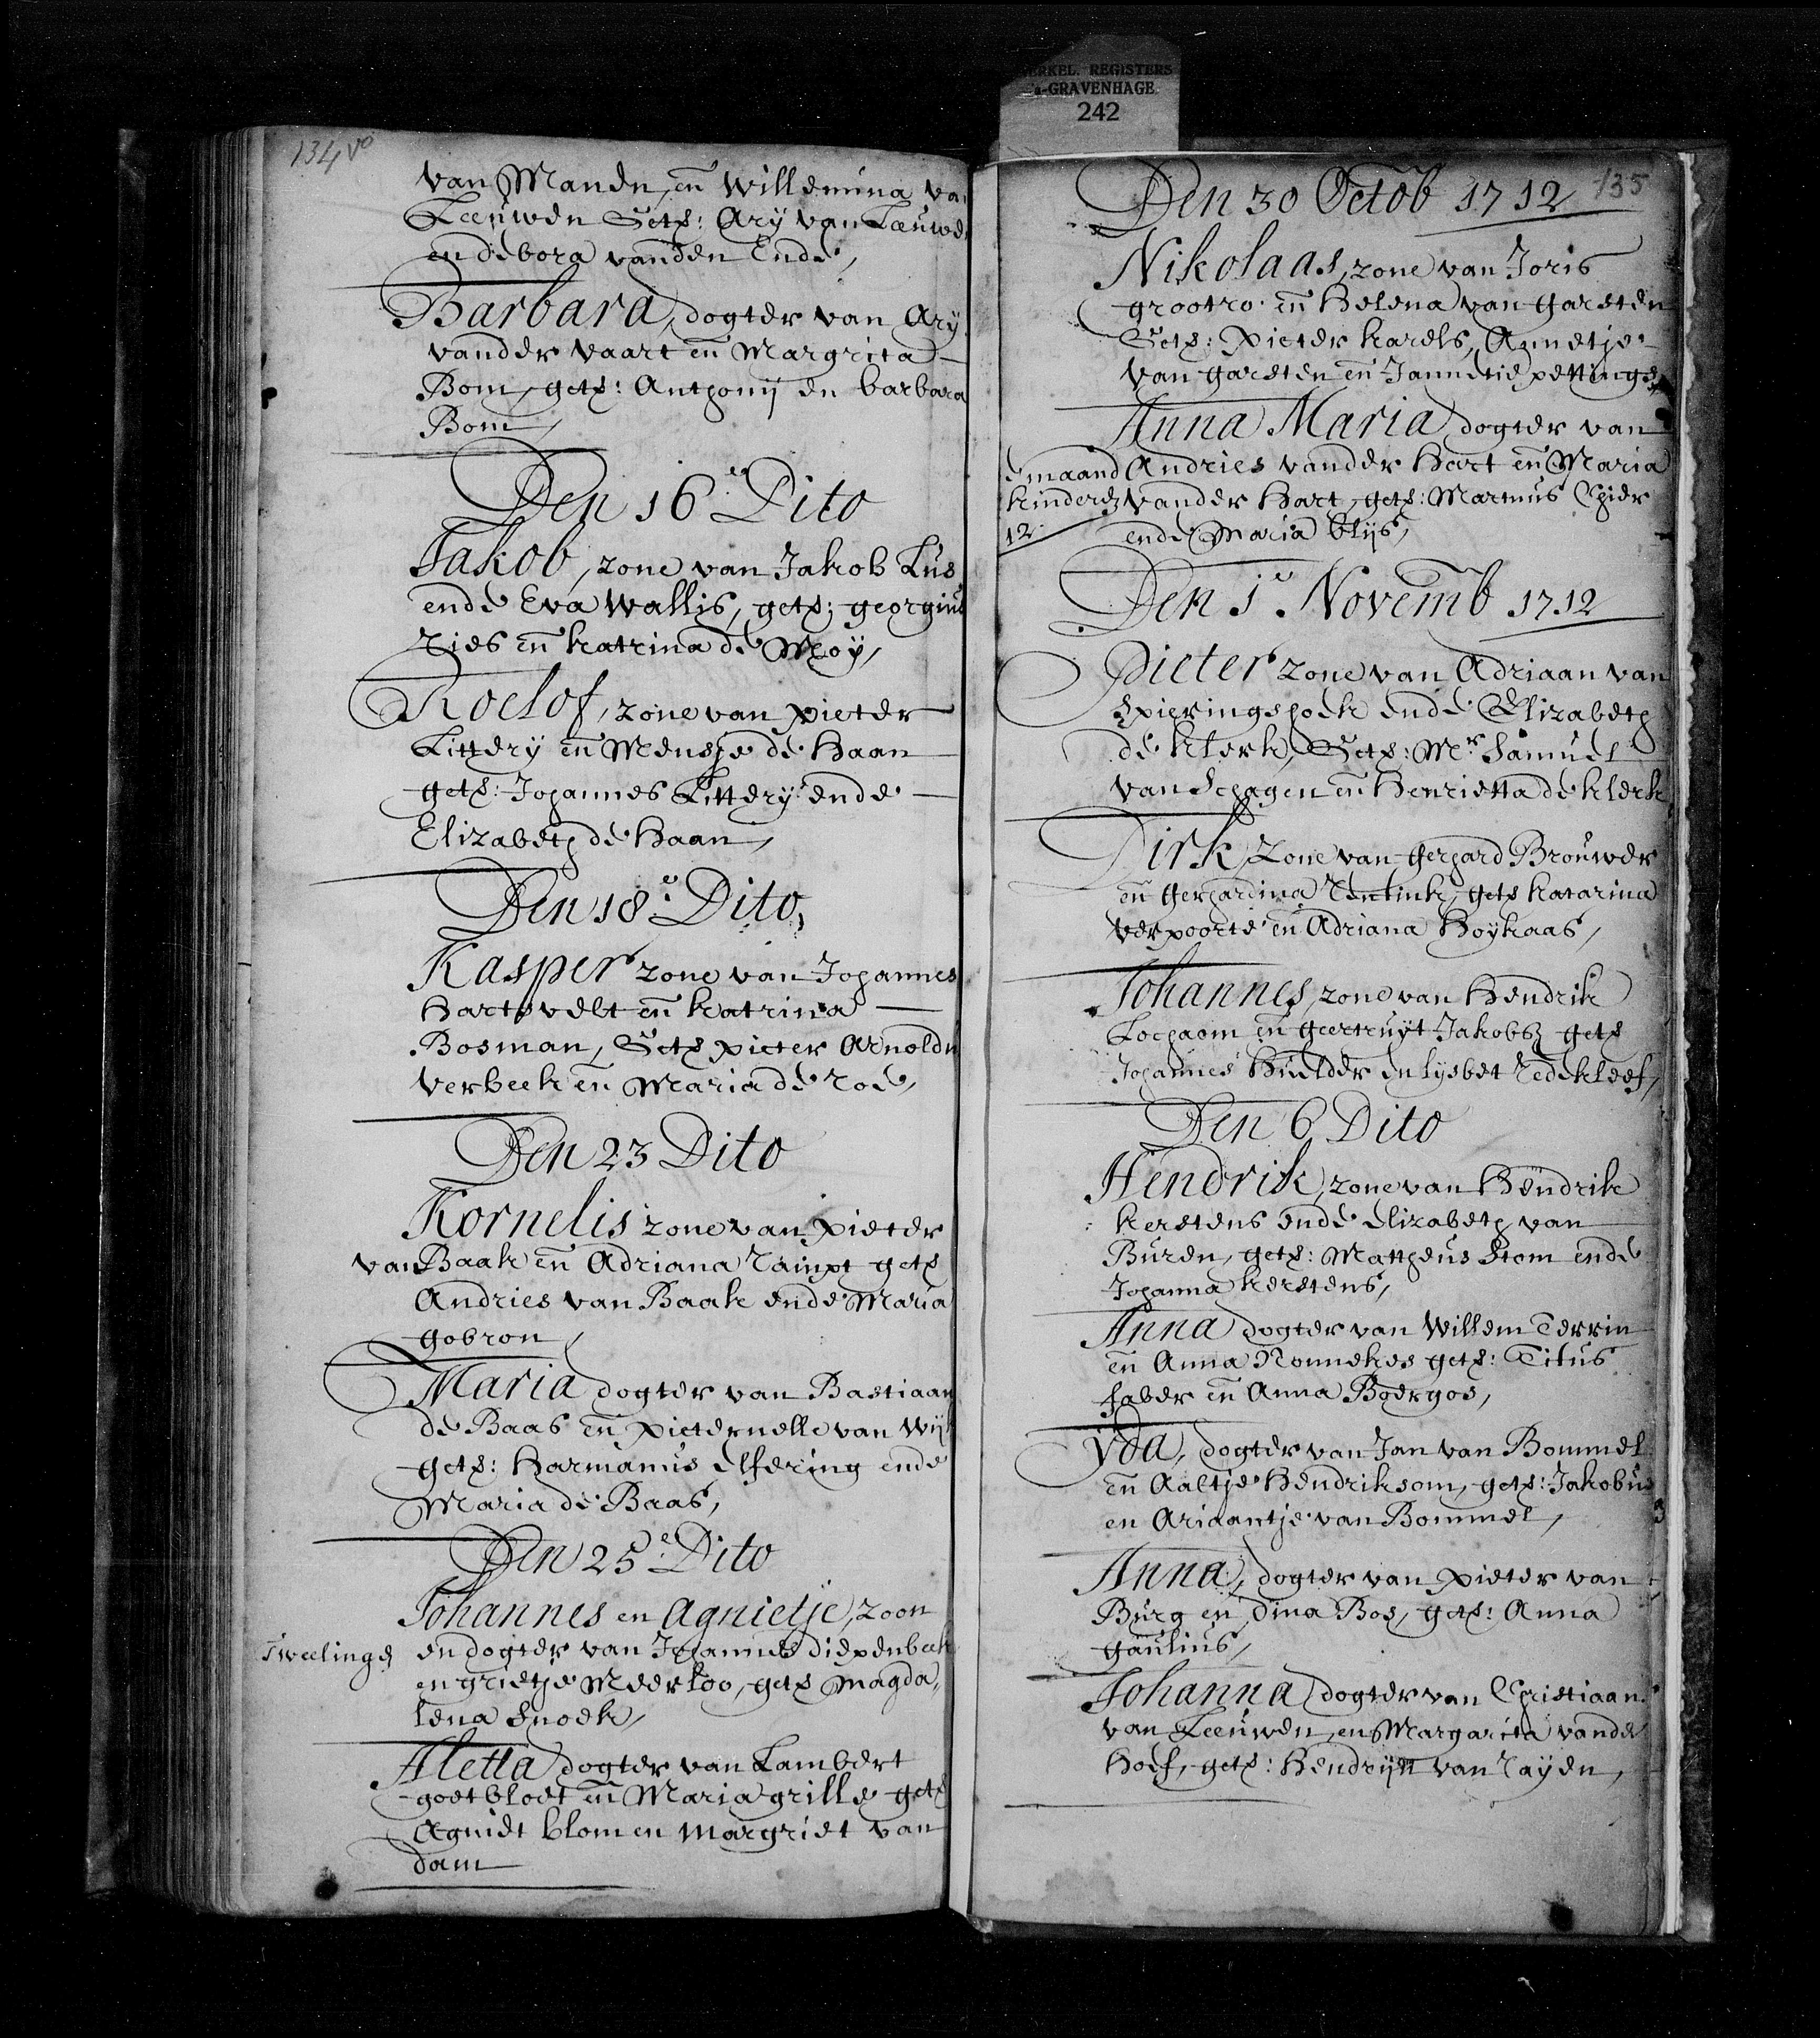 KERKEL. REGISTERS
's-GRAVENHAGE
242
134 vo
van Manen, en Willemina van
Leeuwen GetS: Ary van Leeuwen
en debora vanden Ende,
Barbara, dogter van Ary
vander vaart en Margrita
Bom, getS: Anthonij en barbara
Bom,
Den 16e Dito
Jakob, zone van Jakob Lus
ende Eva Wallis, getS: georgius
Ries en katrina de Moy,
Roelof, zone van pieter
Littery en Mensje de Haan
getS: Johannes Littery ende
Elizabeth de Haan,
Den 18e Dito,
Kasper zone van Johannes
Hartsvelt en katrina
Bosman, GetS pieter Arnoldu
verbeek en Maria de Roe,
Den 23 Dito
Kornelis zone van pieter
van Baak en Adriana Rampt getS
Andries van Baak ende Maria
gobron,
Maria dogter van Bastiaan
de Baas en pieternelle van Wijk
getS: Harmanus elfering ende
Maria de Baas,
Den 25e Dito
Johannes en Agnietje, zoon
Tweelinge en dogter van Johannes diepenbeek
en grietje Meerloo, getS Magda,,
lena Snoek,
Aletta dogter van Lambert
goetbloet en Maria grille getS
Agniet blom en Margriet van
dam
135
Den 30 Octob 1712
Nikolaas, zone van Joris
grootro en Helena van garsten
GetS: pieter karels, Annetje
van garsten en Jannetie pettinge
Anna Maria dogter van
dmaand Andries vander Hart en Maria
kinderen vander Hart, getS: Marinus Chier
12 ende Maria blijs,
Den 1e Novemb 1712
Pieter zone van Adriaan van
Spieringshoek ende Elizabeth
de klerk, GetS: Mr Samuel
van Schagen en Henrietta de klerk
Dirk, zone van gerhard Brouwer
en gerhardina Rentink, getS katarina
verpoorte en Adriana Hoykaas,
Johannes, zone van Hendrik
Lochaom en geertruyt Jakobs getS
Johannes Hielder en lysbet Redekleef,
Den 6 Dito
Hendrik, zone van Hendrik
kerstens ende elizabeth van
Buren, getS: Mattheus Stom ende
Johanna kerstens,
Anna dogter van Willem Terrin
en Anna Nonnekes getS: Titus
faber en Anna Boergos,
Yda, dogter van Jan van Bommel
en Aaltje Hendriksom, getS: Jakobus
en Ariaantje van Bommel,
Anna, dogter van pieter van
Burg en dina Bos, getS: Anna
gaulius,
Johanna dogter van Christiaan
van Leeuwen, en Margarita vande
Hoef, getS: Hendryn van Rayen,